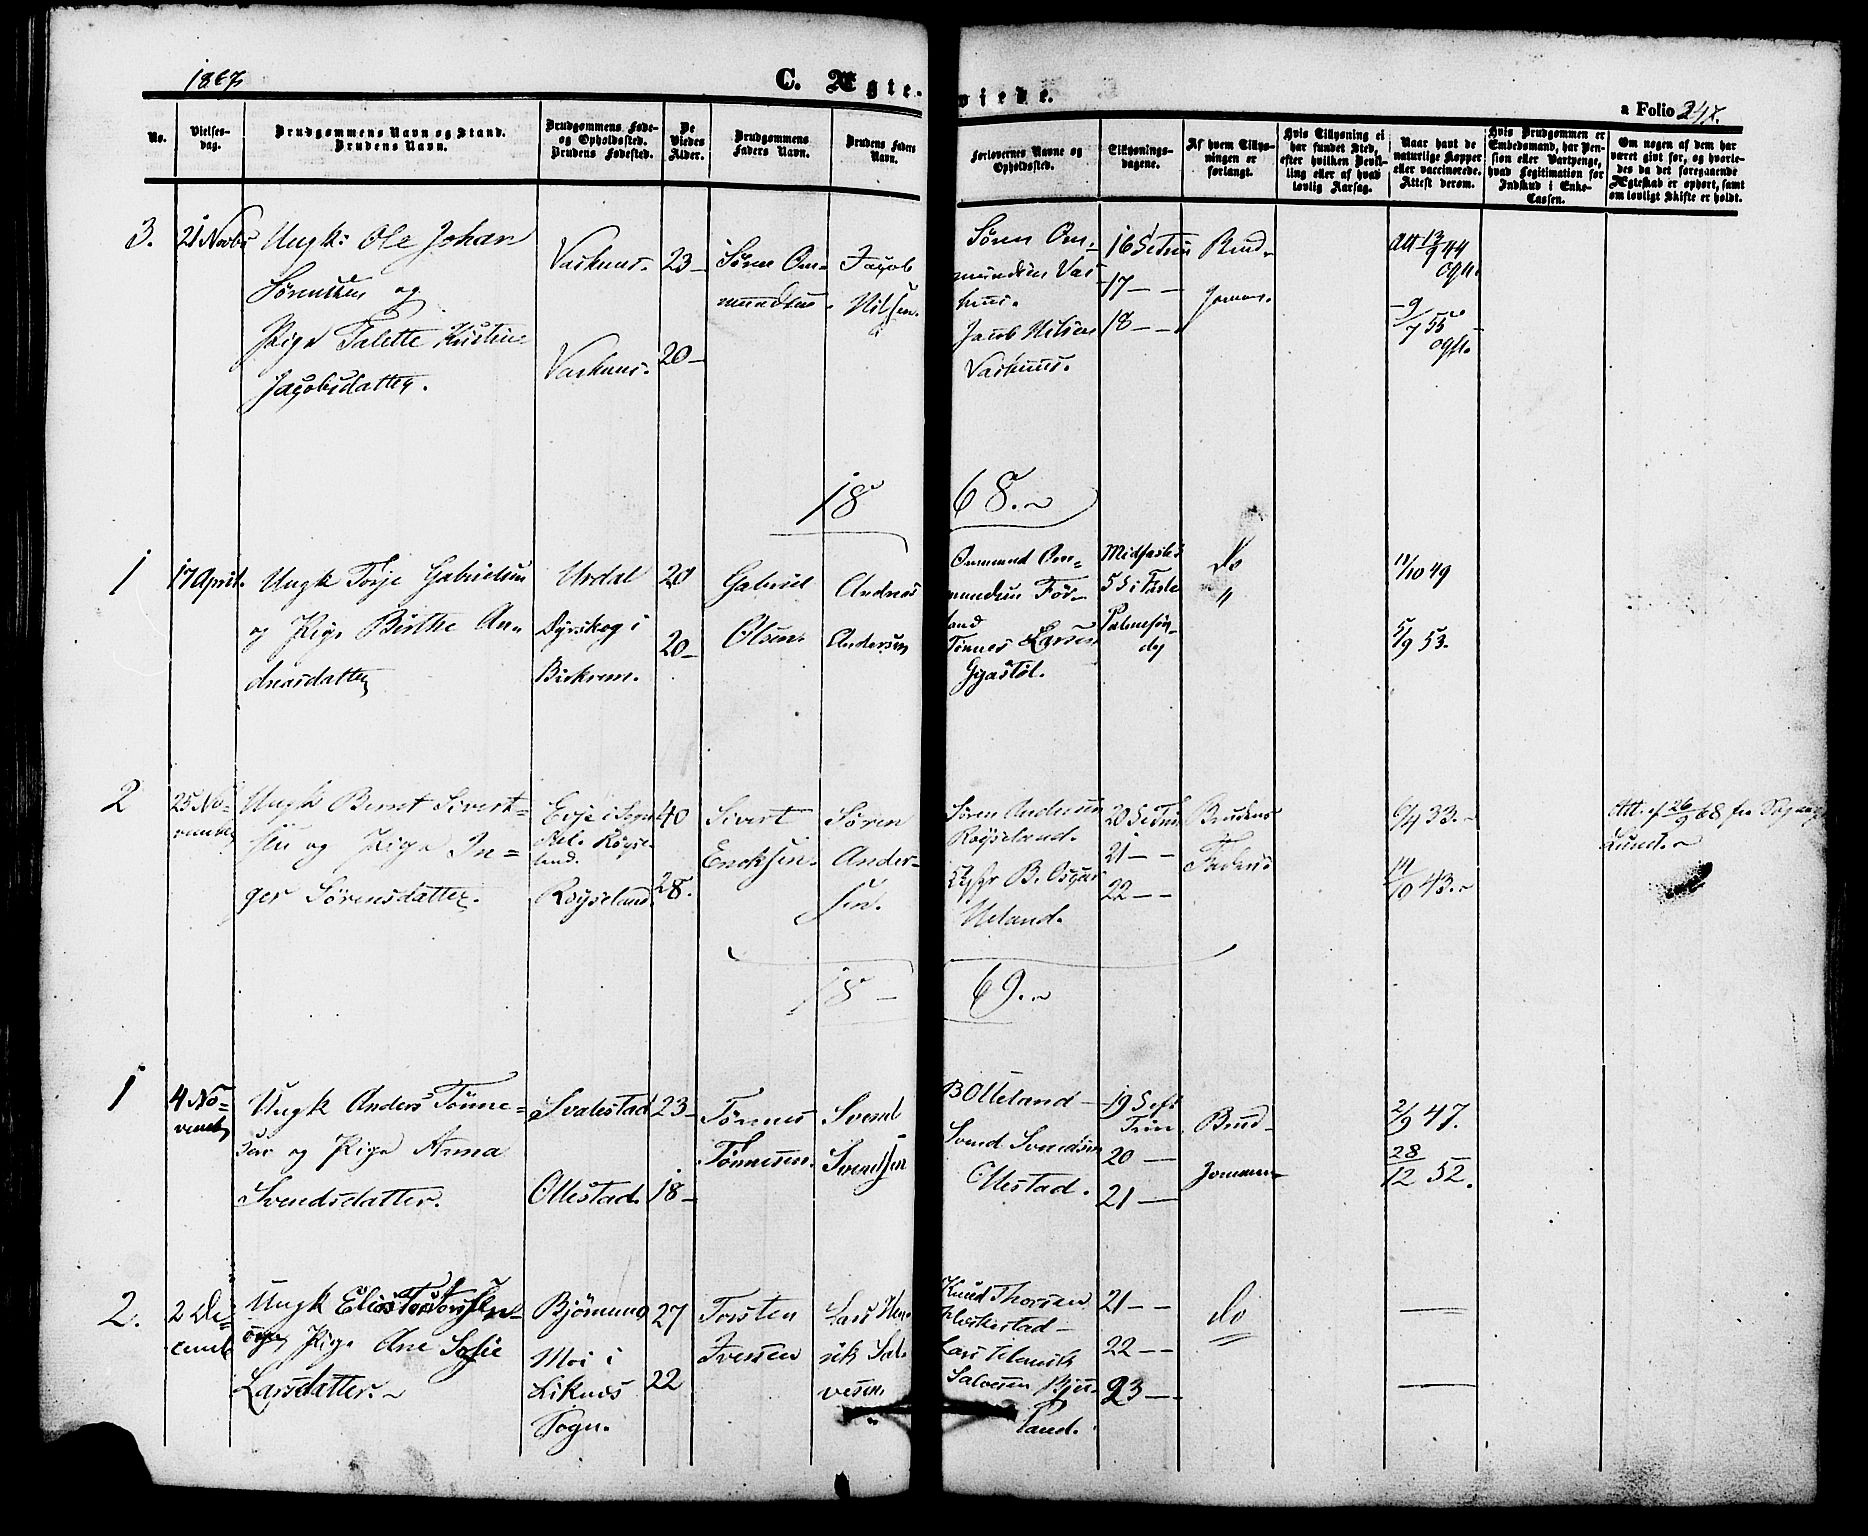 1867
C. Ægte-
viede.
a Folio 247.
No.
Vielses-
dag.
Brudgommens Navn og Stand.
Brudens Navn.
Brudgommens Føde-
og Opholdssted.
Brudens Fødested.
De
Viedes
Alder.
Brudgommens
Faders Navn.
Brudens Faders
Navn.
Forlovernes Navne og
Opholdssted.
Tillysnings-
dagene.
Af hvem Tillys-
ningen er
forlangt.
Hvis Tillysning ei
har fundet Sted,
efter hvilken Bevil-
ling eller af hvad
lovlig Aarsag.
Naar havt de
naturlige Kopper
eller vaccinerede.
Attest derom.
Hvis Brudgommen er
Embedsmand, har Pen-
sion eller Vartpenge,
hvad Legitimation for
Indskud i Enke-
Cassen.
Om nogen af dem har
været gift før, og hvorle-
des da det foregaaende
Ægteskab er ophørt, samt
om lovligt Skifte er holdt.
3.
21 Novbr
Ungk: Ole Johan
Sørensen og
Pige Talette Kristine
Jacobsdatter.
23
20
Søren Om-
mundsen
Jacob
Nilsen.
Søren Om-
mundsen
Jacob Nilsen
16 S e Trin
17 — —
18 — —
Brud-
44
55
18 68.
1
17 April.
Ungk Torje Gabrielsen
og Pige Birthe An-
dreasdatter
Urdal
Dyrskog i
Birkrem.
20
20
Gabriel
Olsen.
Andreas
Andersen
Ommund Om-
mundsen
land
Tønnes Larsen
Gyastøl.
Midfaste
5 S i Faste
Palmesøn-
dg
do
"
11/10 49
5/9 53.
2
25 No-
vember
Ungk Bernt Sivert-
sen og Pige In-
ger Sørensdatter.
Evje i Sogn-
dal. Røyse-
land.
Røyseland.
40
28.
Sivert
Søren
Ander-
sen.
Søren Andersen
Røyseland.
Ueland.
20 S e Trin
21 — —
22 — —
Brudens
Faders
6/4 33.
14/10 43.
Att. af 26/9 68 fra
Lund.
18 — 69.
1
4 No-
vember
Ungk Anders Tønne-
sen og Pige Anna
Svendsdatter.
Svalestad
Ollestad.
23
18
Tønnes
Tønnesen.
Svend
Svendsen
B Ueland
Svend Svendsen
Ollestad.
19 S eft
Trin.
20 —
21 —
Brud-
2/9 47.
28/12 52.
2.
2 De-
cemb
Ungk Elias Torstensen
og Pige Ane Sofie
Larsdatter.
Moi i
Liknes
Sogn.
27
22
Torsten
Iversen
Lars Hen-
rik Sal-
vesen
Knud Thorsen
Lars Henrik
Salvesen
land.
21 — —
22 — —
23 — —
do